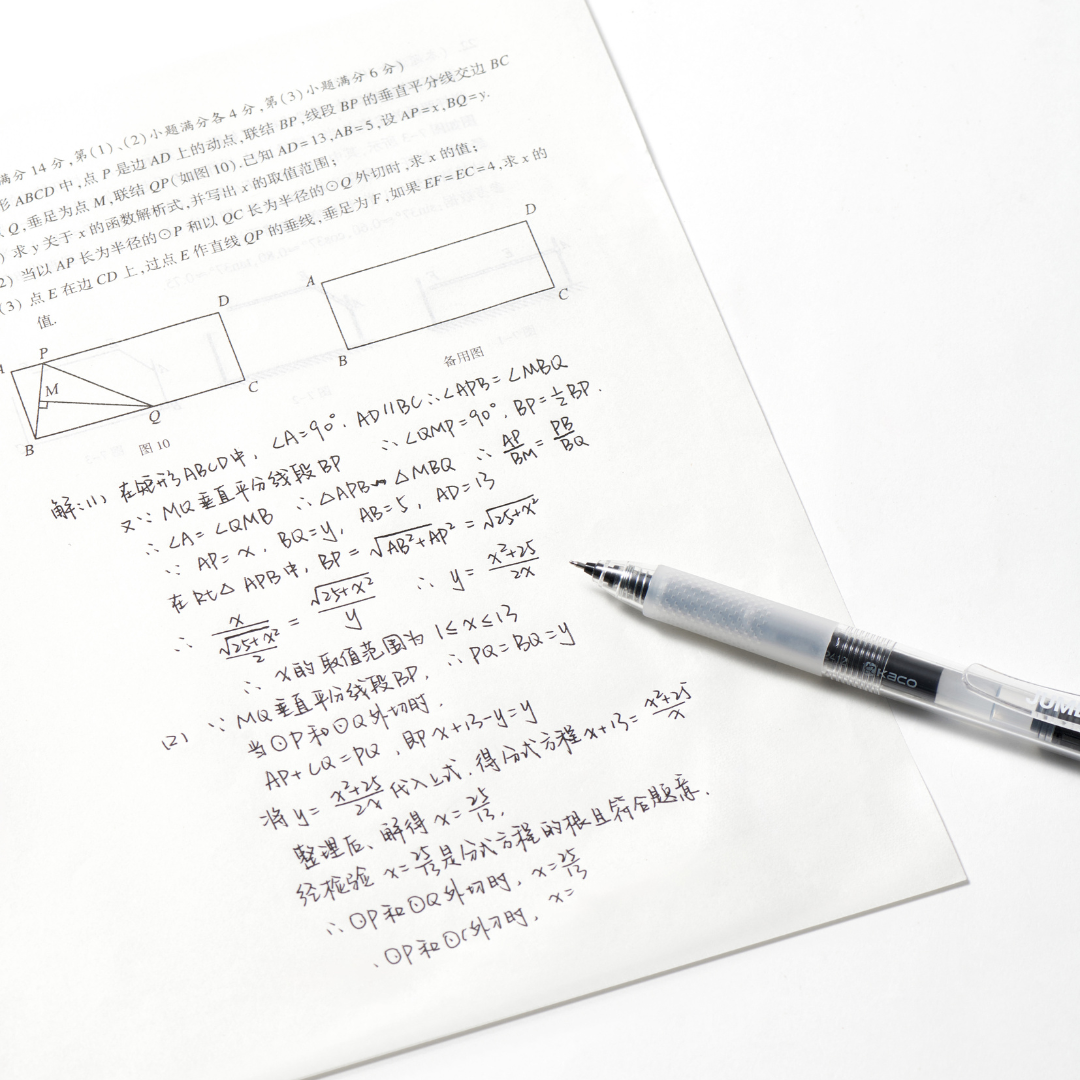 满分14分,第(1)、(2)小题满分各4分,第(3)小题满分6分)
形ABCD中,点P是边AD上的动点,联结BP,线段BP的垂直平分线交边BC
Q,垂足为点M,联结QP(如图10).已知AD=13,AB=5,设AP=x,BQ=y.
) 求y关于x的函数解析式,并写出x的取值范围;
2) 当以AP长为半径的⊙P和以QC长为半径的⊙Q外切时,求x的值;
(3) 点E在边CD上,过点E作直线QP的垂线,垂足为F,如果EF=EC=4,求x的
值.
A
P
D
M
B
Q
C
图10
A
D
B
C
备用图
解:(1) 在矩形ABCD中, ∠A=90°. AD//BC ∴∠APB=∠MBQ
又∵ MQ垂直平分线段BP ∴∠QMP=90°, BP=1/2 BP.
∴ ∠A=∠QMB ∴△APB∽△MBQ ∴ AP/BM=PB/BQ
∵ AP=x, BQ=y, AB=5, AD=13
在Rt△APB中, BP=√(AB²+AP²)=√(25+x²)
∴ x/(√(25+x²)/2)=√(25+x²)/y ∴ y=(x²+25)/2x
∴ x的取值范围为 1≤x≤13
(2) ∵ MQ垂直平分线段BP, ∴ PQ=BQ=y
当⊙P和⊙Q外切时.
AP+CQ=PQ, 即x+13-y=y
将y=(x²+25)/2x代入上式. 得分式方程x+13=(x²+25)/x
整理后、解得x=25/13.
经检验 x=25/13是分式方程的根且符合题意.
∴ ⊙P和⊙Q外切时, x=25/13
⊙P和⊙ 时, x=
kaco